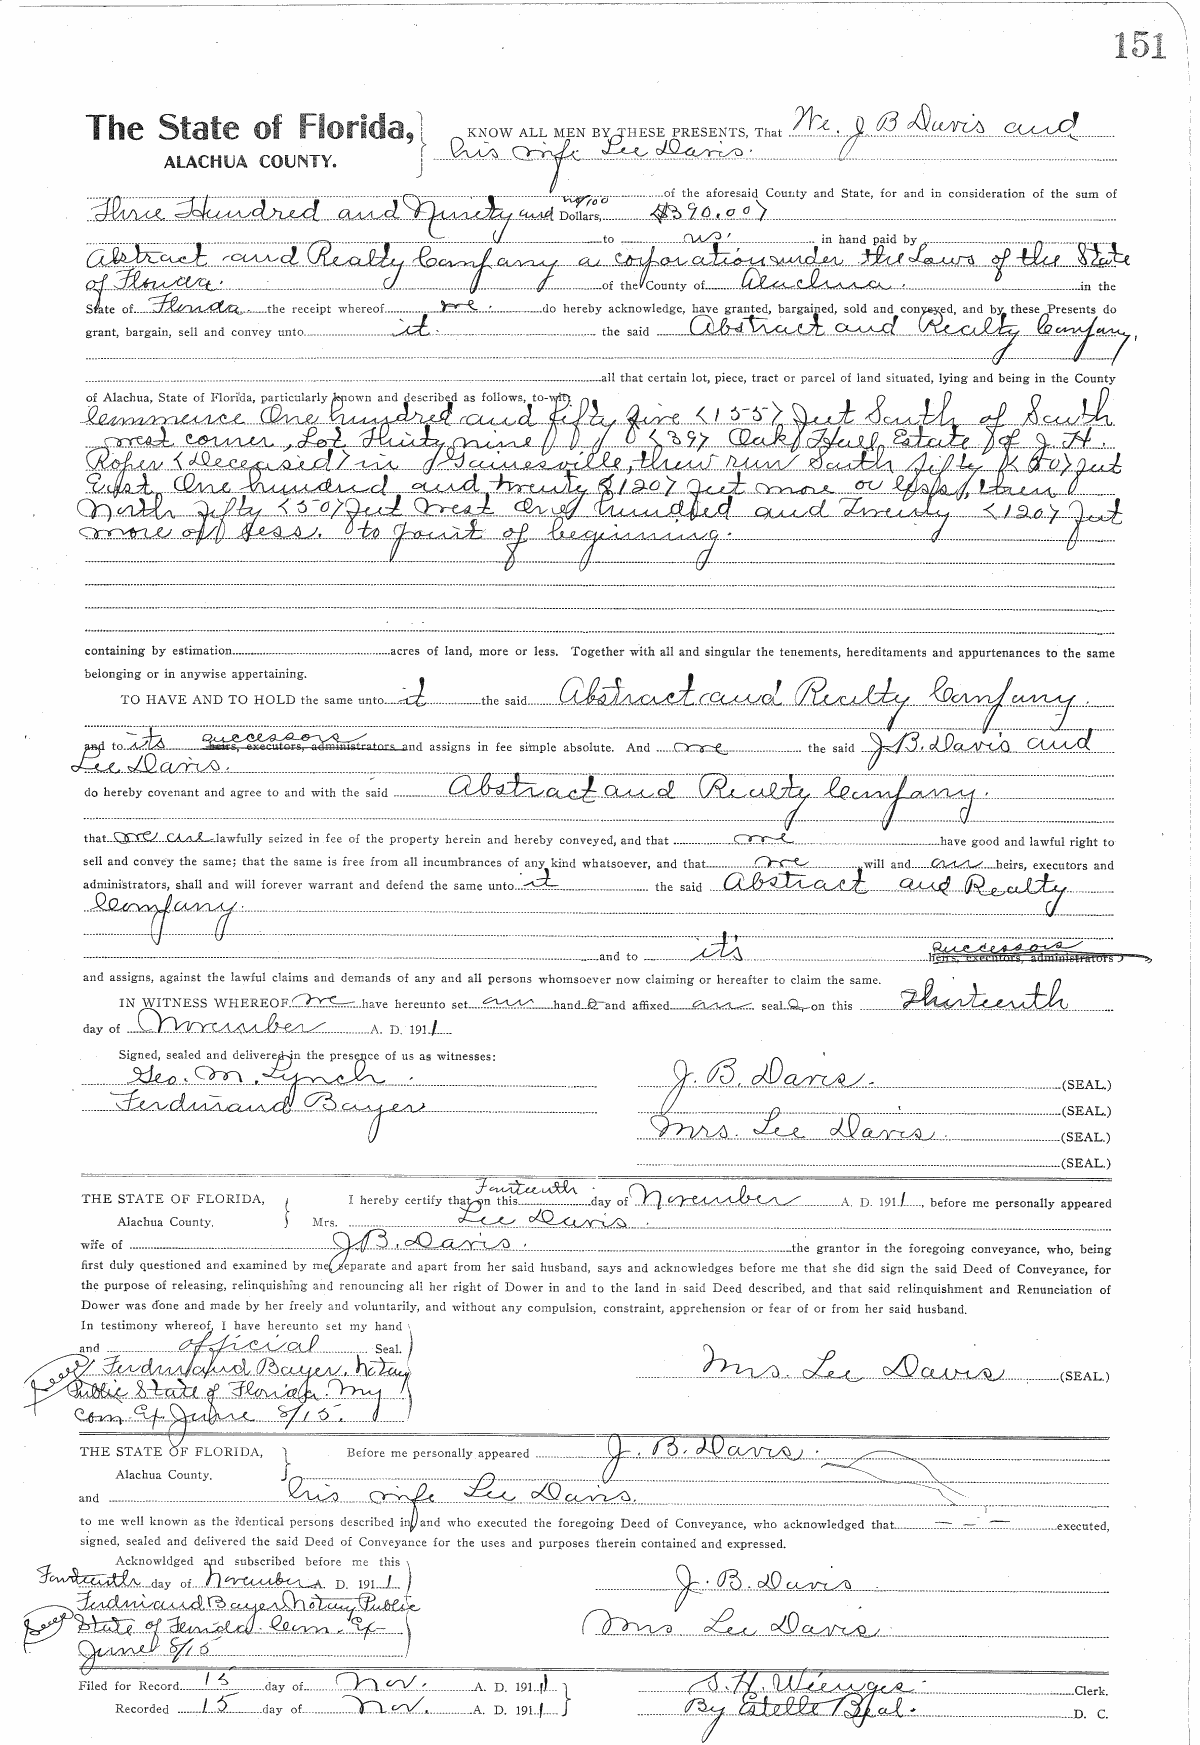 151
The State of Florida, KNOW ALL MEN BY THESE PRESENTS, That We. J B Davis and
ALACHUA COUNTY. his wife Lee Davis.
of the aforesaid County and State, for and in consideration of the sum of
Three Hundred and Ninety and no/100 Dollars, ($390.00)
to us. in hand paid by
Abstract and Realty Company a corporation under the Laws of the State
of Florida. of the County of Alachua. in the
State of Florida. the receipt whereof we. do hereby acknowledge, have granted, bargained, sold and conveyed, and by these Presents do
grant, bargain, sell and convey unto it. the said Abstract and Realty Company,
all that certain lot, piece, tract or parcel of land situated, lying and being in the County
of Alachua, State of Florida, particularly known and described as follows, to-wit:
Commence One hundred and fifty five (155) feet South of South
west corner, Lot Thirty nine (39) Oak Hall Estate of J. H.
Roper (Deceased) in Gainesville, then run South fifty (50) feet
East One hundred and twenty (120) feet more or less, then
North fifty (50) feet West One hundred and Twenty (120) feet
more or less. to point of beginning.
containing by estimation acres of land, more or less. Together with all and singular the tenements, hereditaments and appurtenances to the same
belonging or in anywise appertaining.
TO HAVE AND TO HOLD the same unto it the said Abstract and Realty Company.
and to its successors heirs, executors, administrators and assigns in fee simple absolute. And we the said J B. Davis and
Lee Davis.
do hereby covenant and agree to and with the said Abstract and Realty Company.
that we are lawfully seized in fee of the property herein and hereby conveyed, and that we have good and lawful right to
sell and convey the same; that the same is free from all incumbrances of any kind whatsoever, and that we will and our heirs, executors and
administrators, shall and will forever warrant and defend the same unto it the said Abstract and Realty
Company.
and to it's successors heirs, executors, administrators
and assigns, against the lawful claims and demands of any and all persons whomsoever now claiming or hereafter to claim the same.
IN WITNESS WHEREOF, we have hereunto set our hand s and affixed our seal s on this Thirteenth
day of November A. D. 1911
Signed, sealed and delivered in the presence of us as witnesses:
Geo. M. Lynch. J. B. Davis. (SEAL.)
Ferdinand Bayer (SEAL.)
Mrs. Lee Davis. (SEAL.)
(SEAL.)
THE STATE OF FLORIDA, I hereby certify that on this Fourteenth day of November A. D. 1911, before me personally appeared
Alachua County. Mrs. Lee Davis.
wife of J B. Davis. the grantor in the foregoing conveyance, who, being
first duly questioned and examined by me, separate and apart from her said husband, says and acknowledges before me that she did sign the said Deed of Conveyance, for
the purpose of releasing, relinquishing and renouncing all her right of Dower in and to the land in said Deed described, and that said relinquishment and Renunciation of
Dower was done and made by her freely and voluntarily, and without any compulsion, constraint, apprehension or fear of or from her said husband.
In testimony whereof, I have hereunto set my hand
and official Seal.
Seal Ferdinand Bayer, Notary Mrs. Lee Davis (SEAL.)
Public State of Florida. My
Com. Ex June 8/15.
THE STATE OF FLORIDA, Before me personally appeared J. B. Davis.
Alachua County.
and his wife Lee Davis.
to me well known as the identical persons described in and who executed the foregoing Deed of Conveyance, who acknowledged that — — — executed,
signed, sealed and delivered the said Deed of Conveyance for the uses and purposes therein contained and expressed.
Acknowldged and subscribed before me this
Fourteenth day of November A. D. 1911 J. B. Davis
Ferdinand Bayer Notary Public
Seal State of Florida. Com. Ex Mrs Lee Davis.
June 8/15
Filed for Record 15 day of Nov. A. D. 1911 S. H. Wienges. Clerk.
Recorded 15 day of Nov. A. D. 1911 By Estelle Beal. D. C.